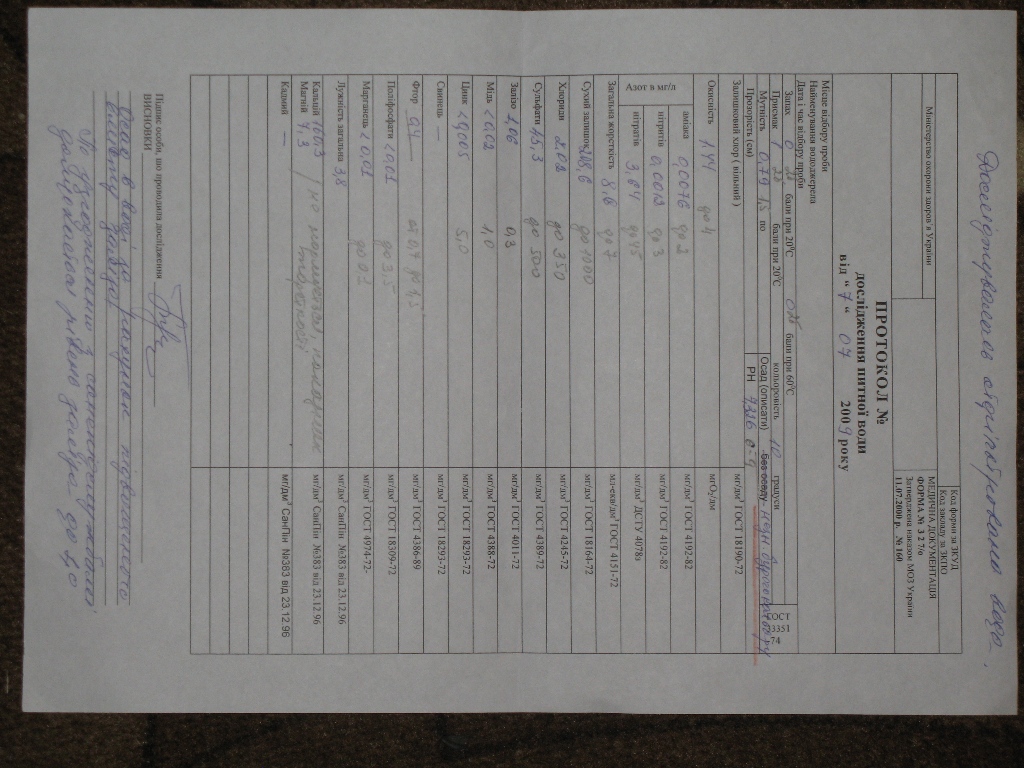 Досліджувалась відфільтрована вода.
Міністерство охорони здоров'я України
Код форми за ЗКУД
Код закладу за ЗКПО
МЕДИЧНА ДОКУМЕНТАЦІЯ
ФОРМА № 3 2 7/о
Затверджена наказом МОЗ України
11.07.2000 р. № 160
ПРОТОКОЛ №
дослідження питної води
від “ 7 “ 07 2009 року
Місце відбору проби
Найменування вододжерела
Дата і час відбору проби
Запах 0 бали при 20⁰С бали при 60⁰С кольоровість 10 градуси ГОСТ 3351 74
Присмак 1 бали при 20⁰С Осад (описати) без осаду
Мутність 0,79 1,5 по РН 7,336 6-9
Прозорість (см)
Залишковий хлор ( вільний ) мг/дм³ ГОСТ 18190-72
Окисність 1,44 до 4 мгО₂/дм
Азот в мг/л
аміака 0,0076 до 2 мг/дм³ ГОСТ 4192-82
нітритів 0,0013 до 3 мг/дм³ ГОСТ 4192-82
нітратів 3,64 до 45 мг/дм³ ДСТУ 4078з
Загальна жорсткість 8,6 до 7 мз-екв/дм³ ГОСТ 4151-72
Сухий залишок до 1000 мг/дм³ ГОСТ 18164-72
Хлориди до 350 мг/дм³ ГОСТ 4245-72
Сульфати 45,3 до 500 мг/дм³ ГОСТ 4389-72
Залізо 1,06 0,3 мг/дм³ ГОСТ 4011-72
Мідь <0,02 1,0 мг/дм³ ГОСТ 4388-72
Цинк <0,005 5,0 мг/дм³ ГОСТ 18293-72
Свинець — мг/дм³ ГОСТ 18293-72
Фтор 0,4 від 0,7 до 1,5 мг/дм³ ГОСТ 4386-89
Поліфосфати <0,01 до 3,5 мг/дм³ ГОСТ 18309-72
Марганець <0,01 до 0,1 мг/дм³ ГОСТ 4974-72-
Лужність загальна 3,8 мг/дм³ СанПін №383 від 23.12.96
Кальцій мг/дм³ СанПін №383 від 23.12.96
Магній 4,3
Кадмій — мг/дм³ СанПін №383 від 23.12.96
Підпис особи, що проводила дослідження
ВИСНОВКИ
По узгодженню з санепідслужбою
допускається рівень заліза до 1,0